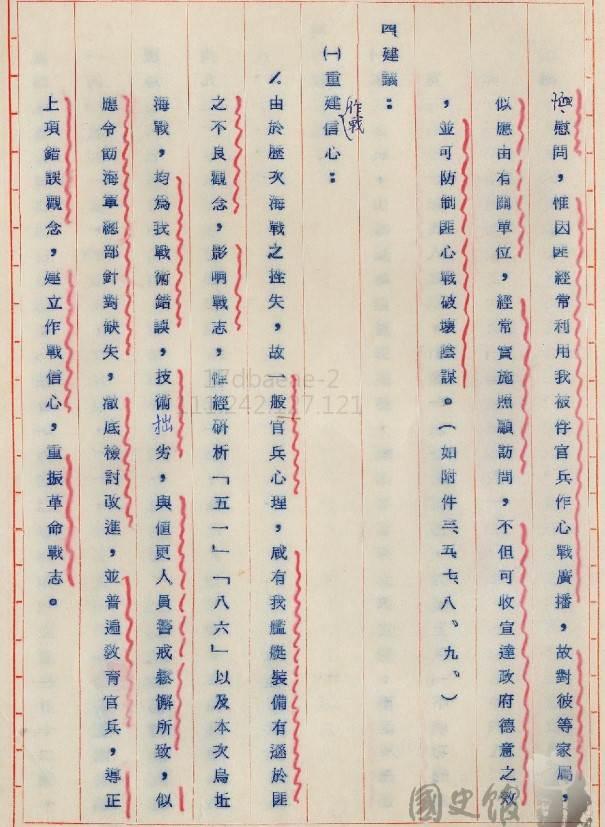 慰問，惟因匪經常利用我被俘官兵作心戰廣播，故對彼等家屬，
似應由有關單位，經常實施照顧訪問，不但可收宣達政府德意之效
，並可防制匪心戰破壞陰謀。（如附件三、五、七、八、九、）
四建議：
㈠重建作戰信心：
1.由於歷次海戰之挫失，故一般官兵心理，咸有我艦艇裝備有遜於匪
之不良觀念，影响戰志，惟經研析「五一」「八六」以及本次烏坵
海戰，均為我戰術錯誤，技術拙劣，與值更人員警戒鬆懈所致，似
應令飭海軍總部針對缺失，澈底檢討改進，並普遍教育官兵，導正
上項錯誤觀念，建立作戰信心，重振革命戰志。
17dbaeae-2
國史館